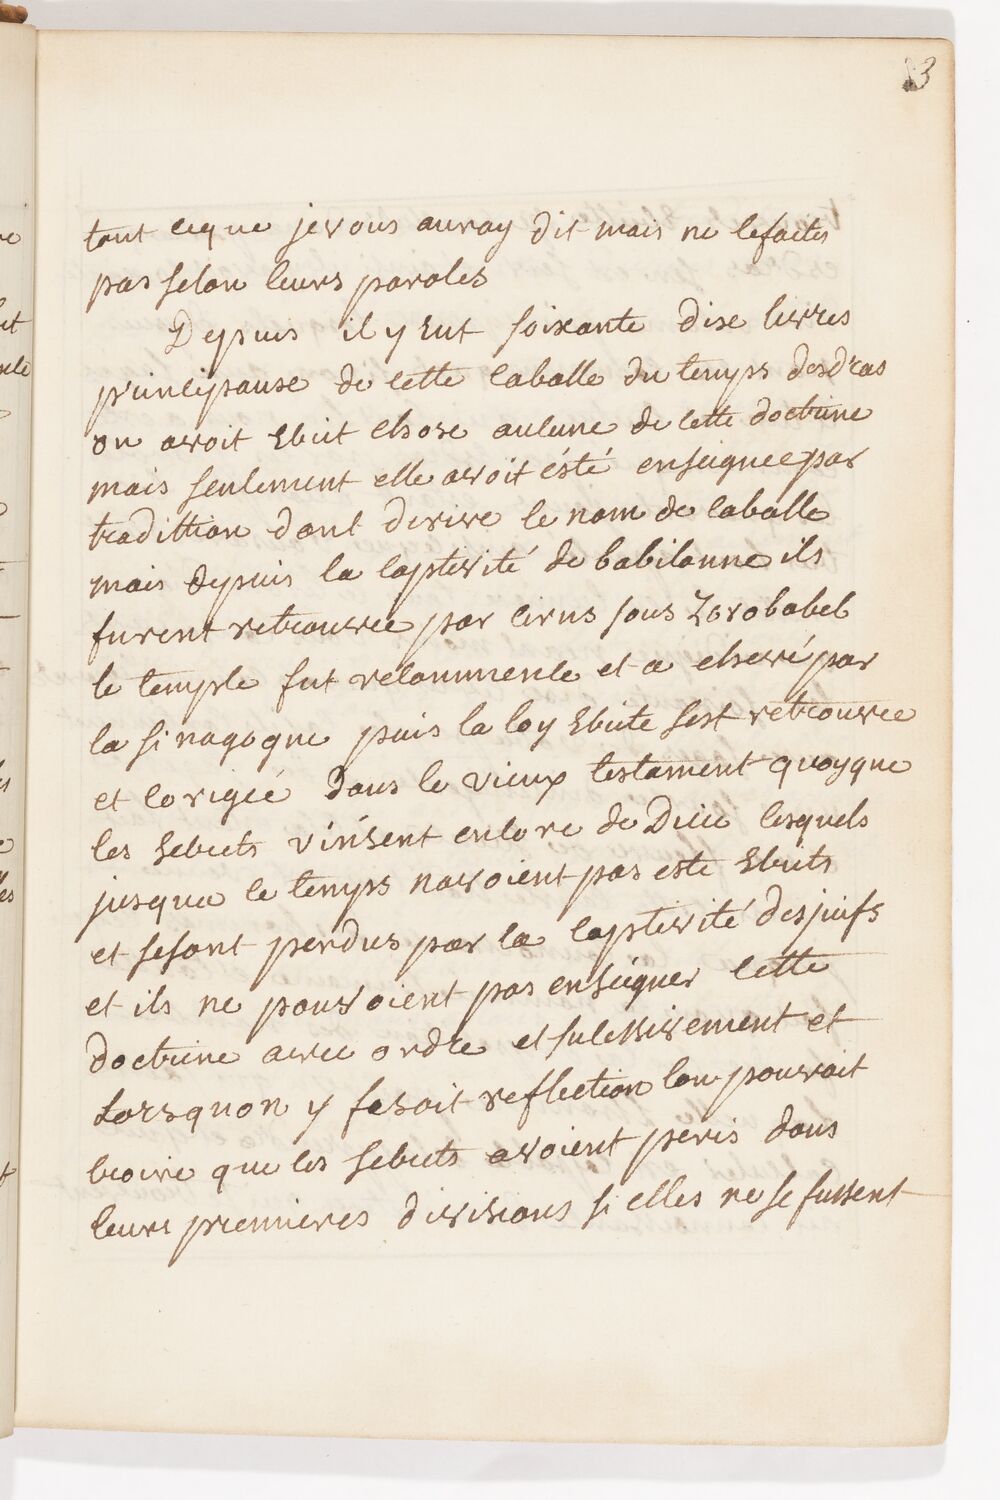 3
tout ceque jevous auray dit mais ne lefaites
pas selon leurs paroles
Depuis il y Eut soixante dixe livres
principause de cette caballe du temps desdras
on avoit Ebcit chose aulcune de cette doctrine
mais seulement elle avoit ésté enseignee par
tradittion dont derive le nom de caballe
mais depuis la captivité de babilonne ils
furent retrouvee par cirus sous Zorobabel
le temple fut recommence et a chevé par
la sinagogue puis la loy Ebcite sest retrouvee
et corigéé dans le vieux testament quoyque
les secrets vinsent encore de Dieu lesquels
jusque ce temps navoient pas este Ebcits
et sesont perdus par la captivité desjuifs
et ils ne pouvoient pas enseigner cette
doctrine avec ordre et sucessivement et
Lorsquon y fesoit reflection lon pouvoit
croire que les secrets avoient peris dans
leurs premieres divisions si elles ne se fussent